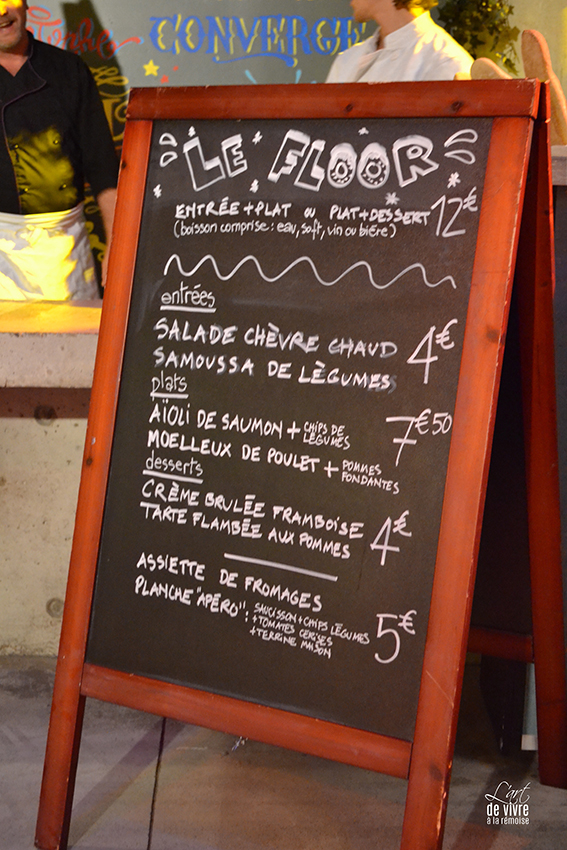 CONVERGE
LE FLOOR
ENTRÉE+PLAT OU PLAT+DESSERT 12€
(boisson comprise: eau, soft, vin ou bière)
entrées
SALADE CHÈVRE CHAUD
SAMOUSSA DE LÉGUMES
4€
plats
AÏOLI DE SAUMON + CHIPS DE
LÉGUMES
7€50
MOELLEUX DE POULET + POMMES
FONDANTES
desserts
CRÈME BRULÉE FRAMBOISE
TARTE FLAMBÉE AUX POMMES
4€
ASSIETTE DE FROMAGES
PLANCHE "APÉRO": SAUCISSON+CHIPS LÉGUMES
+TOMATES CERISES
+TERRINE MAISON
5€
L'art
de vivre
à la rémoise